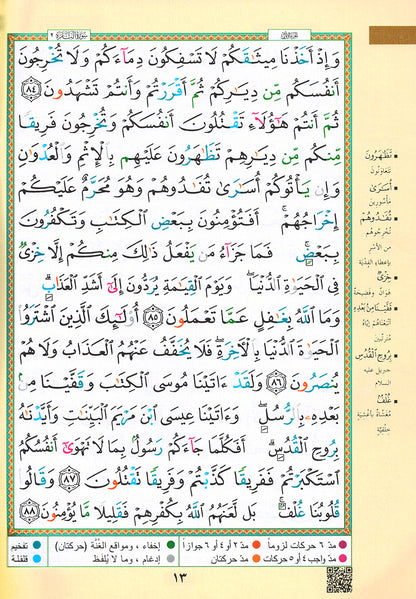 سُورَةُ البَقَرَةِ ٢
الجُزءُ الأوَّل
وَإِذْ أَخَذْنَا مِيثَٰقَكُمْ لَا تَسْفِكُونَ دِمَآءَكُمْ وَلَا تُخْرِجُونَ
أَنفُسَكُم مِّن دِيَٰرِكُمْ ثُمَّ أَقْرَرْتُمْ وَأَنتُمْ تَشْهَدُونَ ٨٤
ثُمَّ أَنتُمْ هَٰٓؤُلَآءِ تَقْتُلُونَ أَنفُسَكُمْ وَتُخْرِجُونَ فَرِيقًا
مِّنكُم مِّن دِيَٰرِهِمْ تَظَٰهَرُونَ عَلَيْهِم بِٱلْإِثْمِ وَٱلْعُدْوَٰنِ
وَإِن يَأْتُوكُمْ أُسَٰرَىٰ تُفَٰدُوهُمْ وَهُوَ مُحَرَّمٌ عَلَيْكُمْ
إِخْرَاجُهُمْ ۚ أَفَتُؤْمِنُونَ بِبَعْضِ ٱلْكِتَٰبِ وَتَكْفُرُونَ
بِبَعْضٍ ۚ فَمَا جَزَآءُ مَن يَفْعَلُ ذَٰلِكَ مِنكُمْ إِلَّا خِزْىٌ
فِى ٱلْحَيَوٰةِ ٱلدُّنْيَا ۖ وَيَوْمَ ٱلْقِيَٰمَةِ يُرَدُّونَ إِلَىٰٓ أَشَدِّ ٱلْعَذَابِ ۗ
وَمَا ٱللَّهُ بِغَٰفِلٍ عَمَّا تَعْمَلُونَ ٨٥ أُو۟لَٰٓئِكَ ٱلَّذِينَ ٱشْتَرَوُا۟
ٱلْحَيَوٰةَ ٱلدُّنْيَا بِٱلْءَاخِرَةِ ۖ فَلَا يُخَفَّفُ عَنْهُمُ ٱلْعَذَابُ وَلَا هُمْ
يُنصَرُونَ ٨٦ وَلَقَدْ ءَاتَيْنَا مُوسَى ٱلْكِتَٰبَ وَقَفَّيْنَا مِنۢ
بَعْدِهِۦ بِٱلرُّسُلِ ۖ وَءَاتَيْنَا عِيسَى ٱبْنَ مَرْيَمَ ٱلْبَيِّنَٰتِ وَأَيَّدْنَٰهُ
بِرُوحِ ٱلْقُدُسِ ۗ أَفَكُلَّمَا جَآءَكُمْ رَسُولٌۢ بِمَا لَا تَهْوَىٰٓ أَنفُسُكُمُ
ٱسْتَكْبَرْتُمْ فَفَرِيقًا كَذَّبْتُمْ وَفَرِيقًا تَقْتُلُونَ ٨٧ وَقَالُوا۟
قُلُوبُنَا غُلْفٌۢ ۚ بَل لَّعَنَهُمُ ٱللَّهُ بِكُفْرِهِمْ فَقَلِيلًا مَّا يُؤْمِنُونَ ٨٨
تَظَٰهَرُونَ
تتعاونون
أُسَٰرَىٰ
مأسورين
تُفَٰدُوهُمْ
تخرجوهم
من الأسر
بإعطاء الفدية
خِزْىٌ
هوان وفضيحة
قَفَّيْنَا مِنۢ بَعْدِهِۦ
أتبعناهم إياه
مترتبين
بِرُوحِ ٱلْقُدُسِ
جبريل عليه
السلام
غُلْفٌۢ
مغشاة بأغشية
خلقية
مدّ ٦ حركات لزوماً مدّ ٢ أو ٤ أو ٦ جوازاً إخفاء، ومواقع الغُنَّة (حركتان) تفخيم
مدّ واجب ٤ أو ٥ حركات مدّ حركتان إدغام، وما لا يُلفَظ قلقلة
١٣